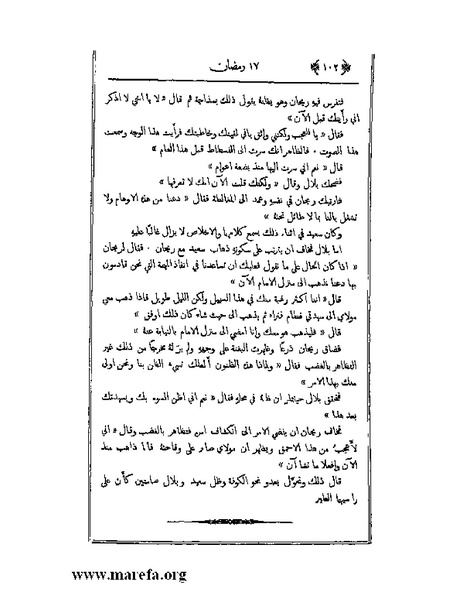 ﴿ ١٠٢ ﴾ ١٧ رمضان
فتفرس فيه ريحان وهو يظنه يقول ذلك بسذاجة ثم قال « لا يا اخي لا اذكر
اني رأيتك قبل الآن »
فقال « يا للعجب ولكنني واثق باني لقيتك وخاطبتك فرأيت هذا الوجه وسمعت
هذا الصوت . فالظاهر انك سرت الى الفسطاط قبل هذا العام »
قال « نعم اني سرت اليها منذ بضعة اعوام »
فضحك بلال وقال « ولكنك قلت الآن انك لا تعرفها »
فارتبك ريحان في نفسه وعمد الى المغالطة فقال « دعنا من هذه الاوهام ولا
تشغل بالنا بما لا طائل تحته »
وكان سعيد في اثناء ذلك يسمع كلامهما والاخلاص لا يزال غالبًا عليه
اما بلال فخاف ان يترتب على سكوته ذهاب سعيد مع ريحان . فقال لريحان
« اذا كان الحال على ما تقول فعليك ان تساعدنا في انفاذ المهمة التي نحن قادمون
بها دعنا نذهب الى منزل الامام الآن »
قال « اننا اكثر رغبة منك في هذا السبيل ولكن الليل طويل فاذا ذهب معي
مولاي الى سيدتي قطام فتراه ثم يذهب الى حيث شاء كان ذلك اوفق »
قال « فليذهب هو معك وانا امضي الى منزل الامام بالنيابة عنه »
فضاق ريحان ذرعًا وظهرت البغتة على وجهه ولم يرَ له مخرجًا من ذلك غير
التظاهر بالغضب فقال « ولماذا هذه الظنون أنظلك تسيء الظن بنا ونحن اولى
منك بهذا الامر »
فتحقق بلال حينئذٍ ان ظنه في محله فقال « نعم اني اظن السوء بك وبسيدتك
بعد هذا »
فخاف ريحان ان يفضي الامر الى انكشاف امره فتظاهر بالغضب وقال « اني
لأعجب من هذا الاحمق ويظهر ان مولاي صابر على وقاحته فأنا ذاهب منذ
الآن وافعلا ما تشاآن »
قال ذلك وتحول يعدو نحو الكوفة وظل سعيد و بلال صامتين كأن على
رأسيهما الطير
www.marefa.org